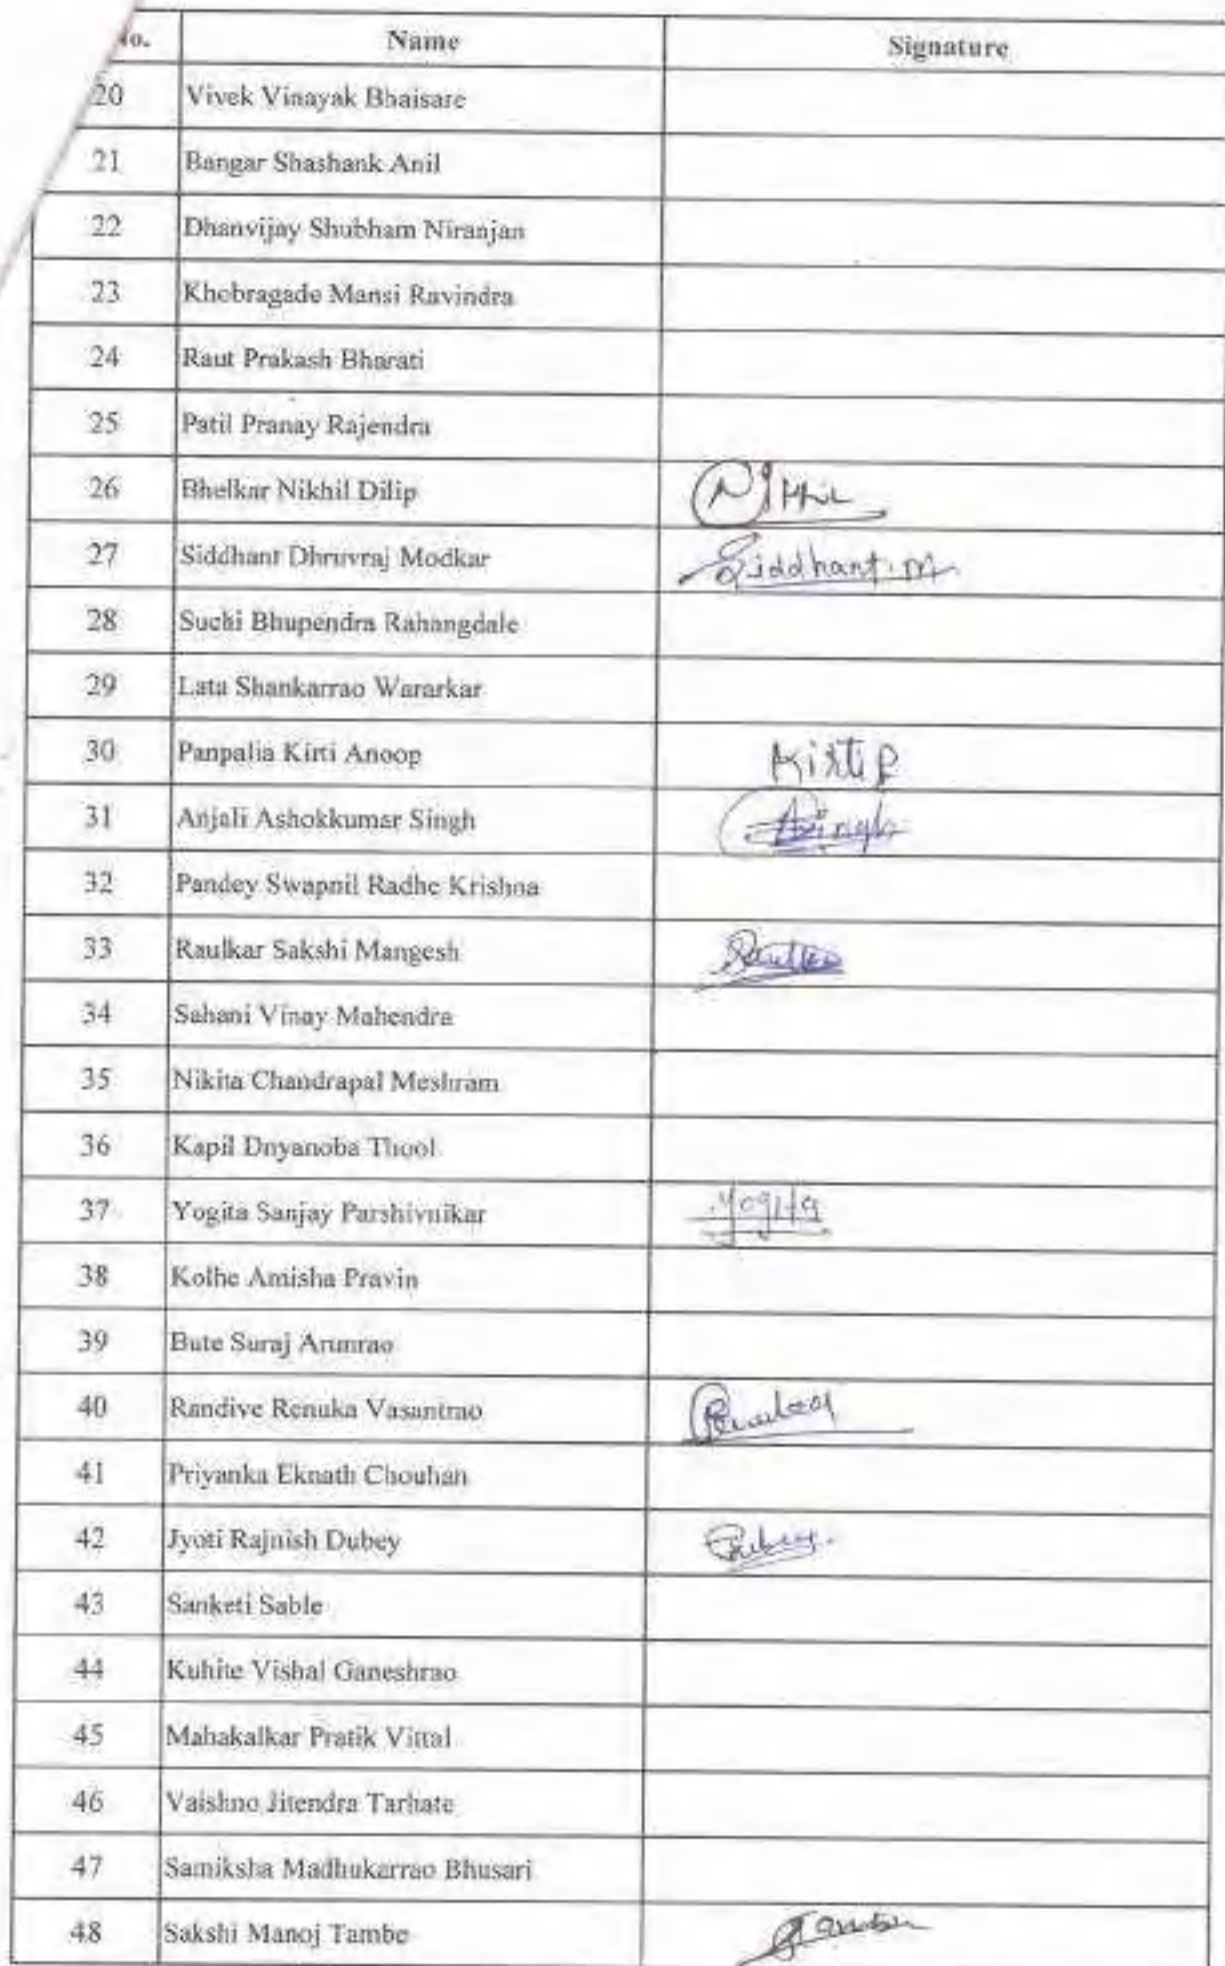 No. Name Signature
20 Vivek Vinayak Bhaisare
21 Bangar Shashank Anil
22 Dhanvijay Shubham Niranjan
23 Khobragade Mansi Ravindra
24 Raut Prakash Bharati
25 Patil Pranay Rajendra
26 Bhelkar Nikhil Dilip
27 Siddhant Dhruvraj Modkar Siddhant.M
28 Suchi Bhupendra Rahangdale
29 Lata Shankarrao Wararkar
30 Panpalia Kirti Anoop Kirti P
31 Anjali Ashokkumar Singh ASingh
32 Pandey Swapnil Radhe Krishna
33 Raulkar Sakshi Mangesh
34 Sahani Vinay Mahendra
35 Nikita Chandrapal Meshram
36 Kapil Dnyanoba Thool
37 Yogita Sanjay Parshivnikar Yogita
38 Kolhe Amisha Pravin
39 Bute Suraj Arunrao
40 Randive Renuka Vasantrao
41 Priyanka Eknath Chouhan
42 Jyoti Rajnish Dubey
43 Sanketi Sable
44 Kuhite Vishal Ganeshrao
45 Mahakalkar Pratik Vittal
46 Vaishno Jitendra Tarhate
47 Samiksha Madhukarrao Bhusari
48 Sakshi Manoj Tambe